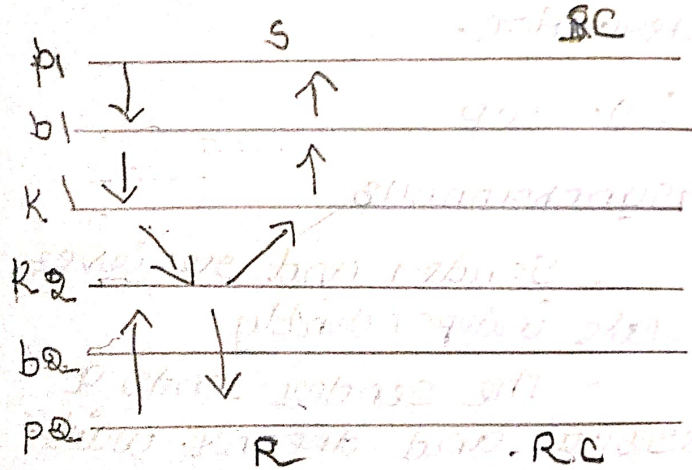 S RC
p1
b1
K
K2
b2
p2
R RC